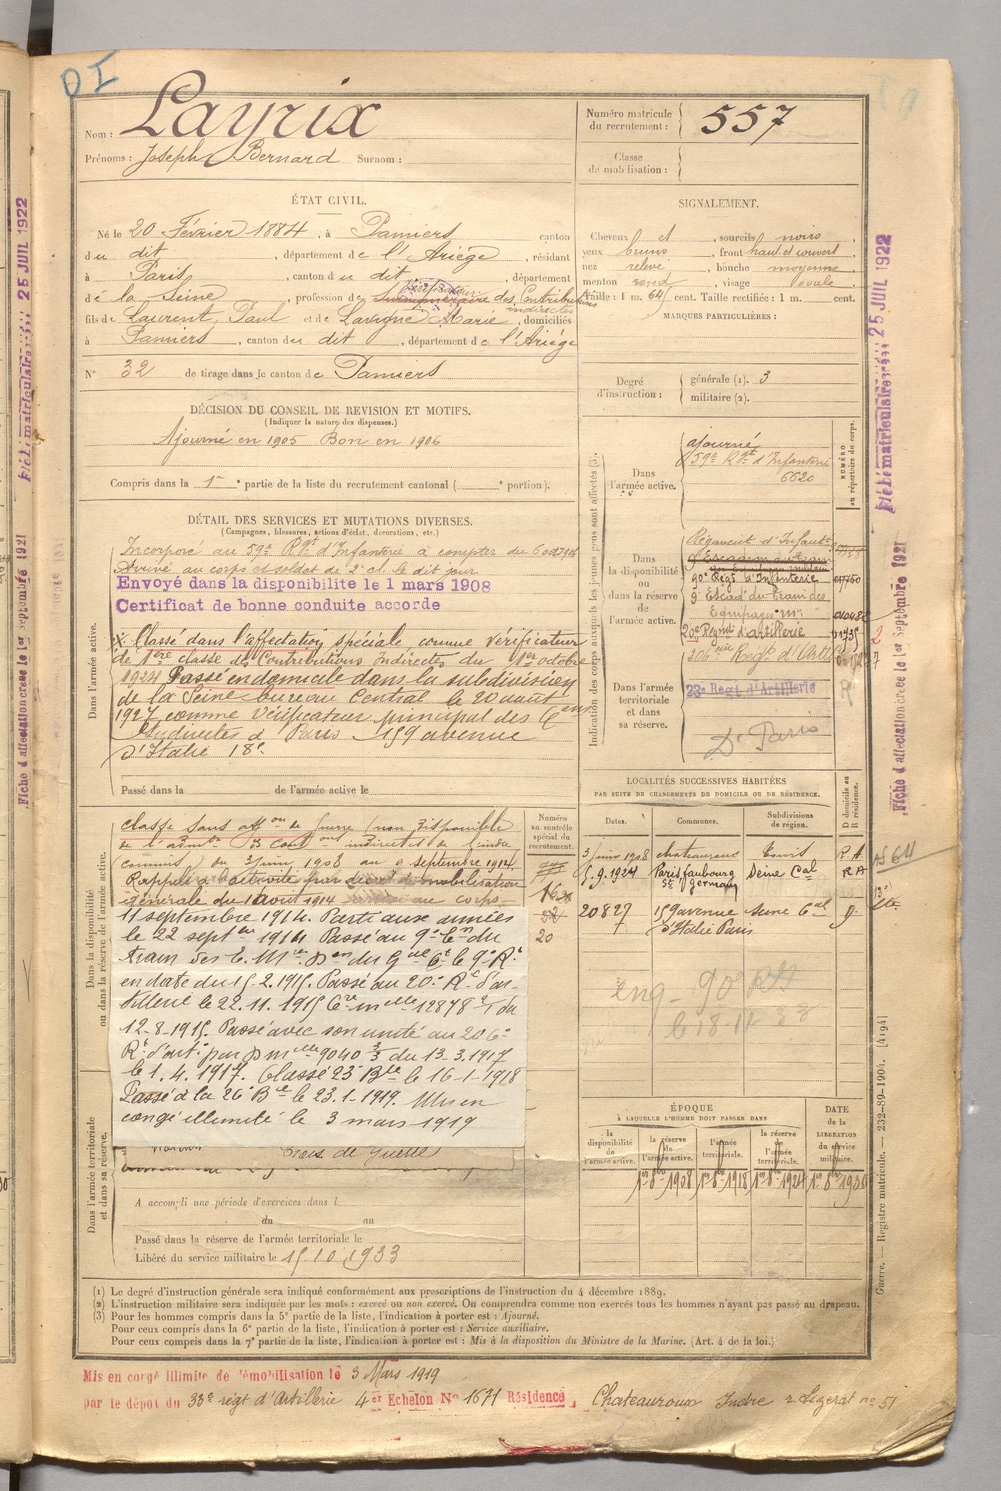 Nom : Layrix
Prénoms : Joseph Bernard Surnom :
Numéro matricule du recrutement : 557
Classe de mobilisation :
ÉTAT CIVIL.
Né le 20 Février 1884, à Pamiers canton
du dit, département de l'Ariège, résidant
à Paris, canton du dit, département
de la Seine, profession de des Contributions
indirectes
fils de Laurent, Paul et de Lavigne Marie, domiciliés
à Pamiers, canton du dit, département de l'Ariège
N° 32 de tirage dans le canton de Pamiers
SIGNALEMENT.
Cheveux et, sourcils noirs,
yeux bruns, front haut et couvert
nez relevé, bouche moyenne
menton rond, visage ovale
Taille : 1 m. 64 cent. Taille rectifiée : 1 m. cent.
MARQUES PARTICULIÈRES :
Degré d'instruction : générale (1). 3
militaire (2).
DÉCISION DU CONSEIL DE REVISION ET MOTIFS.
(Indiquer la nature des dispenses.)
Ajourné en 1905 Bon en 1906
Compris dans la 1re partie de la liste du recrutement cantonal ( e portion).
DÉTAIL DES SERVICES ET MUTATIONS DIVERSES.
(Campagnes, blessures, actions d'éclat, décorations, etc.)
Incorporé au 59e Rgt d'Infanterie à compter du 6 oct 1906
Arrivé au corps et soldat de 2e cl. le dit jour
Envoyé dans la disponibilite le 1 mars 1908
Certificat de bonne conduite accorde
Dans l'armée active.
Classé dans l'affectation spéciale comme Vérificateur
de 1ère classe des Contributions Indirectes du 1er octobre
1924 Passé en domicile dans la subdivision
de la Seine bureau Central le 20 août
1927 comme Vérificateur principal des Cons
Indirectes à Paris 159 avenue
d'Italie 18e
Passé dans la de l'armée active le
Indication des corps auxquels les jeunes gens sont affectés (3).
NUMÉRO au répertoire du corps.
Dans l'armée active.
ajourné
59e Rgt d'Infanterie
6620
Dans la disponibilité ou dans la réserve de l'armée active.
Régiment d'Infanterie
90e Régt d'Infanterie
9e Escad du train des
Equipages Mres
20e Régiment d'artillerie
206eme Régt d'Artie
Dans l'armée territoriale et dans sa réserve.
23e Regt d'Artillerie
Dt Paris
LOCALITÉS SUCCESSIVES HABITÉES
PAR SUITE DE CHANGEMENTS DE DOMICILE OU DE RÉSIDENCE.
Dates. Communes. Subdivisions de région. D domicile ou R résidence.
3 juin 1908 chateauroux Tours R.A.
5.9.1924 Paris faubourg St germain Seine Cal RA
20 8 27 159 avenue d'Italie Paris Seine Cal D.
Dans la disponibilité ou dans la réserve de l'armée active.
Numéro au contrôle spécial du recrutement.
20
classé sans affon de guerre (non disponible
commis) du 3 juin 1908 au septembre 1914
Rappelé à l'activité par décret de mobilisation
générale du 1 août 1914 arrivé au corps
11 septembre 1914. Parti aux armées
le 22 septembre 1914 Passé au 9e Eon du
train des E. Mres
en date du 15.2.1915. Passé au 20e Rt d'ar-
tillerie le 22.11.1915
12-8-1915. Passé avec son unité au 206e
Rt d'arti par D melle 9040 3/3 du 13-3-1917
le 1.4.1917. Classé 23 Bie le 16-1-1918
Passé à la 26 Bie le 23.1-1919. Mis en
congé illimité le 3 mars 1919
Croix de Guerre
Dans l'armée territoriale et dans sa réserve.
A accompli une période d'exercices dans l
du au
Passé dans la réserve de l'armée territoriale le
Libéré du service militaire le 15.10.1933
ÉPOQUE
À LAQUELLE L'HOMME DOIT PASSER DANS
la disponibilité de l'armée active.
la réserve de l'armée active. 1er 8bre 1908
l'armée territoriale. 1er 8bre 1918
la réserve de l'armée territoriale. 1er 8bre 1924
DATE de la LIBÉRATION du service militaire. 1er 8bre 1930
(1) Le degré d'instruction générale sera indiqué conformément aux prescriptions de l'instruction du 4 décembre 1889.
(2) L'instruction militaire sera indiquée par les mots : exercé ou non exercé. On comprendra comme non exercés tous les hommes n'ayant pas passé au drapeau.
(3) Pour les hommes compris dans la 5e partie de la liste, l'indication à porter est : Ajourné.
Pour ceux compris dans la 6e partie de la liste, l'indication à porter est : Service auxiliaire.
Pour ceux compris dans la 7e partie de la liste, l'indication à porter est : Mis à la disposition du Ministre de la Marine. (Art. 4 de la loi.)
Mis en congé illimite de démobilisation le 3 Mars 1919
par le dépot du 33e régt d'Artillerie 4er Echelon N° 1671 Résidence, Chateauroux Indre r. Lizerat no 51
Guerre. — Registre matricule. — 232-89-1904. [4194]
Fiche matriculaire 25 JUIL 1922
Fiche d affectation creee le 1er Septembre 1921